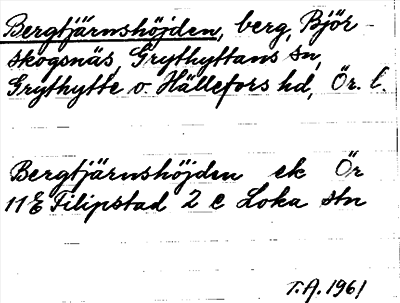 Bergtjärnshöjden, berg, Björ-
skogsnäs, Grythyttans sn,
Grythytte o. Hällefors hd, Ör. l.
Bergtjärnshöjden ek Ör
11E Filipstad 2 c Loka stn
T.A. 1961